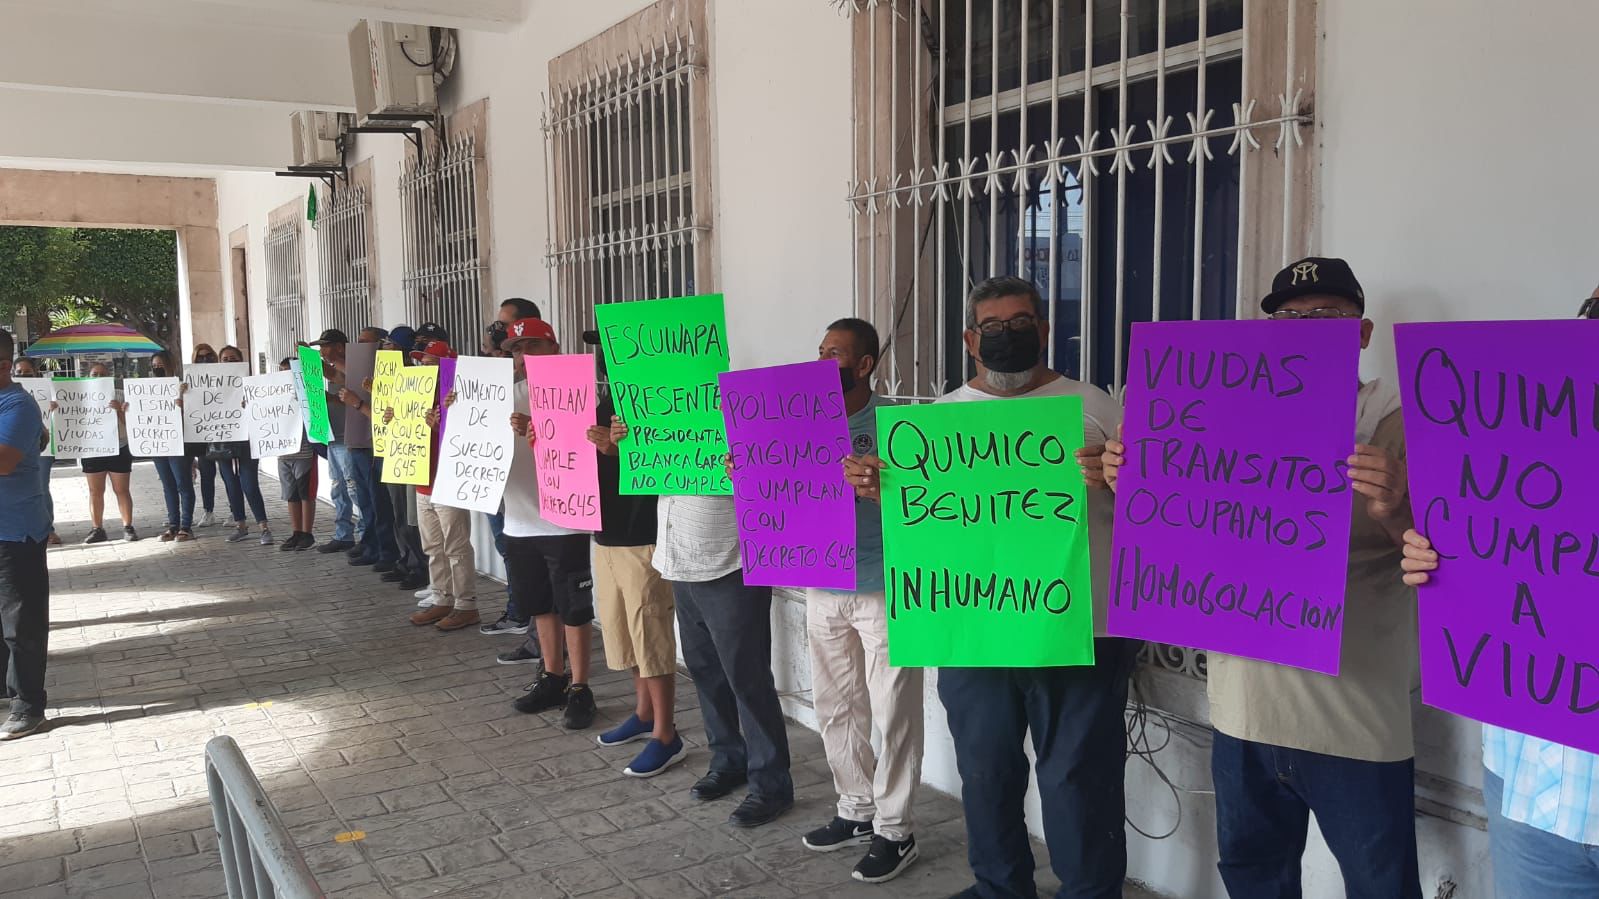 QUIMICO
INHUMANO
TIENE
VIUDAS
DESPROTEGIDAS
POLICIAS
ESTAN
EN EL
DECRETO
645
AUMENTO
DE
SUELDO
DECRETO
645
PRESIDENTE
CUMPLA
SU
PALABRA
QUIMICO
CUMPLE
CON EL
DECRETO
645
AUMENTO
DE
SUELDO
DECRETO
645
NO
CUMPLE
CON
DECRETO 645
ESCUINAPA
PRESENTE
PRESIDENTA
BLANCA
NO CUMPLE
POLICIAS
EXIGIMOS
CUMPLAN
CON
DECRETO 645
QUIMICO
BENITEZ
INHUMANO
VIUDAS
DE
TRANSITOS
OCUPAMOS
HOMOGOLACIÓN
NO
A